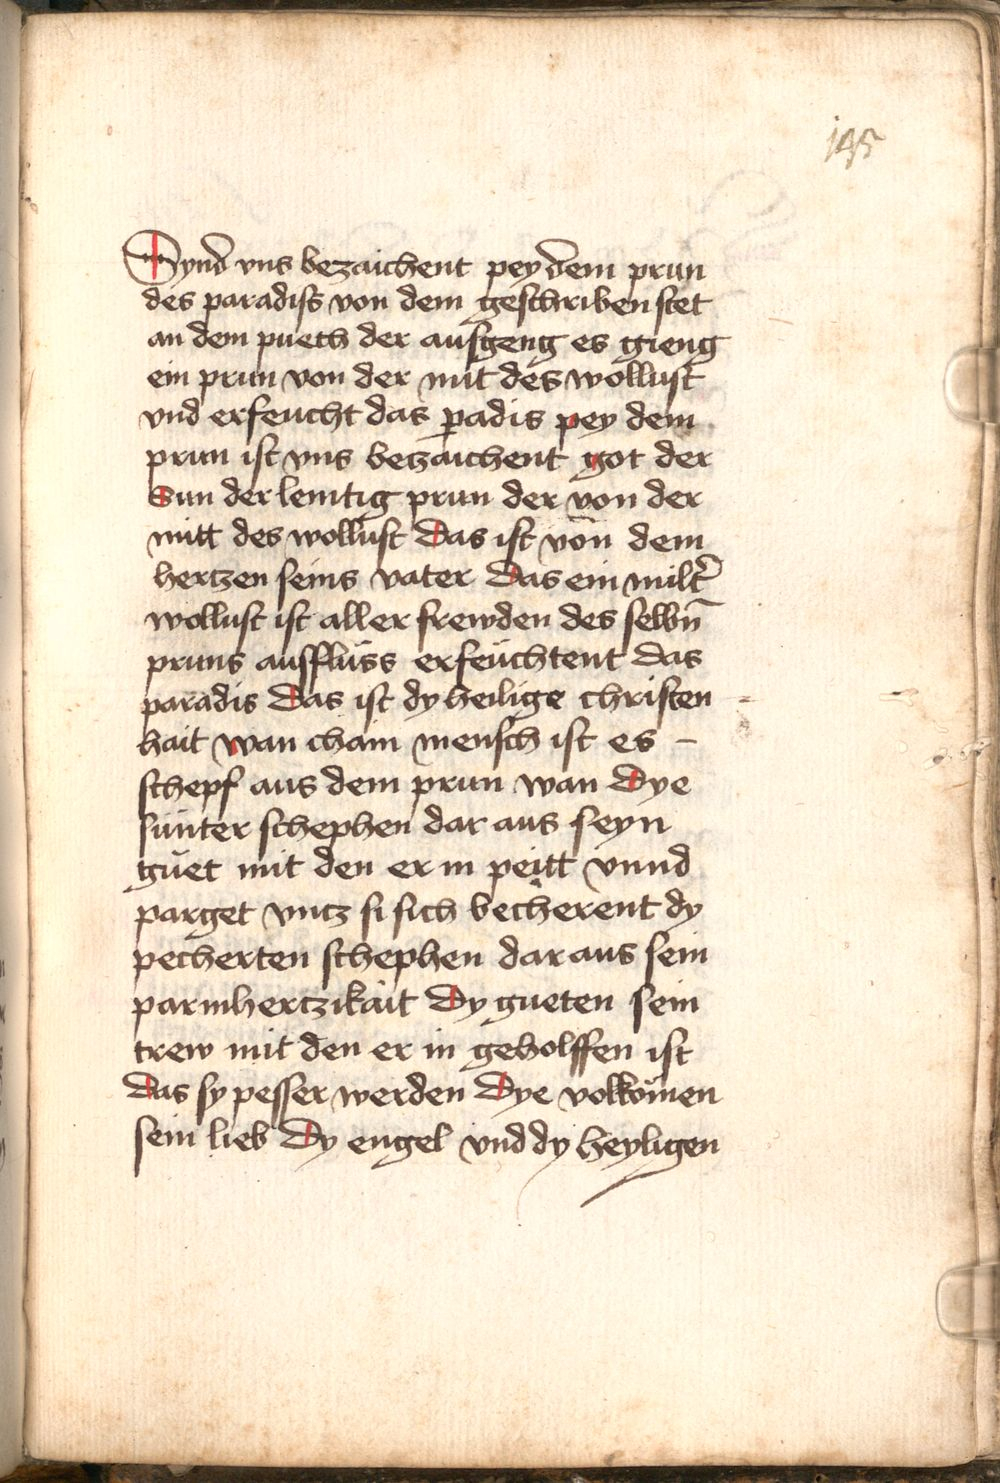 195
Synd vns bezaichent pey dem prun
des paradiss von dem geschriben stet
an dem puech der aufgeng es gieng
ein prun von der mit des wollust
vnd erfeucht das p̱adis pey dem
prun ist vns betzaichent got der
Sun der lemtig prun der von der
mitt des wollust Das ist von dem
hertzen seins vater Das ein milt̓
wollust ist aller frewden des selbn̄
pruns ausfluss erfeuchtent das
paradis Das ist dy heilige christen
hait wan cham mensch ist es –
schepf aus dem prun wan Dye
sunter schephen dar aus seyn
guet mit den er in peitt vnnd
parget vntz si sich becherent dy
pecherten schephen dar aus sein
parmhertzikait Dy gueten sein
trew mit den er in geholffen ist
Das sy pesser werden Dye volkōmen
sein lieb Dy engel vnd dy heyligen